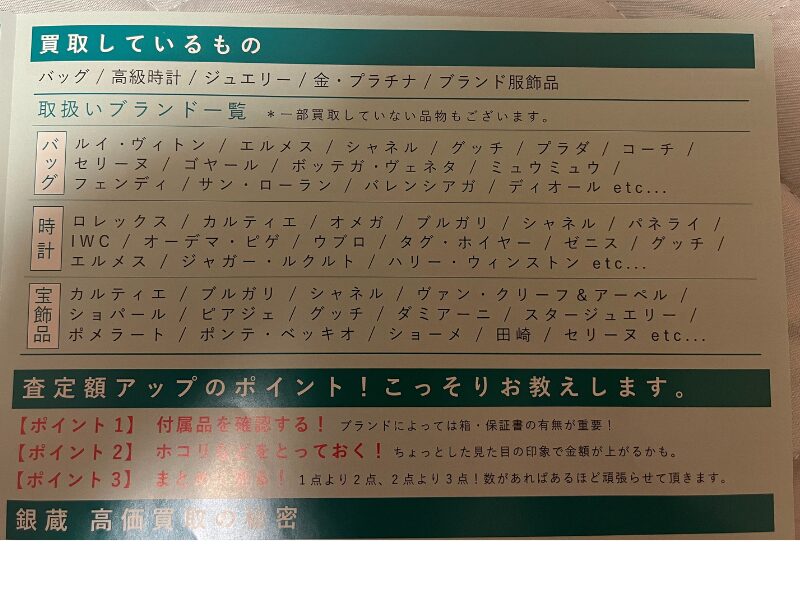 買取しているもの
バッグ / 高級時計 / ジュエリー / 金・プラチナ / ブランド服飾品
取扱いブランド一覧 *一部買取していない品物もございます。
バッグ
ルイ・ヴィトン / エルメス / シャネル / グッチ / プラダ / コーチ /
セリーヌ / ゴヤール / ボッテガ・ヴェネタ / ミュウミュウ /
フェンディ / サン・ローラン / バレンシアガ / ディオール etc...
時計
ロレックス / カルティエ / オメガ / ブルガリ / シャネル / パネライ /
IWC / オーデマ・ピゲ / ウブロ / タグ・ホイヤー / ゼニス / グッチ /
エルメス / ジャガー・ルクルト / ハリー・ウィンストン etc...
宝飾品
カルティエ / ブルガリ / シャネル / ヴァン・クリーフ&アーペル /
ショパール / ピアジェ / グッチ / ダミアーニ / スタージュエリー /
ポメラート / ポンテ・ベッキオ / ショーメ / 田崎 / セリーヌ etc...
査定額アップのポイント！こっそりお教えします。
【ポイント1】 付属品を確認する！ ブランドによっては箱・保証書の有無が重要！
【ポイント2】 ホコリなどをとっておく！ ちょっとした見た目の印象で金額が上がるかも。
【ポイント3】 まとめ る！ 1点より2点、2点より3点！数があればあるほど頑張らせて頂きます。
銀蔵 高価買取の秘密